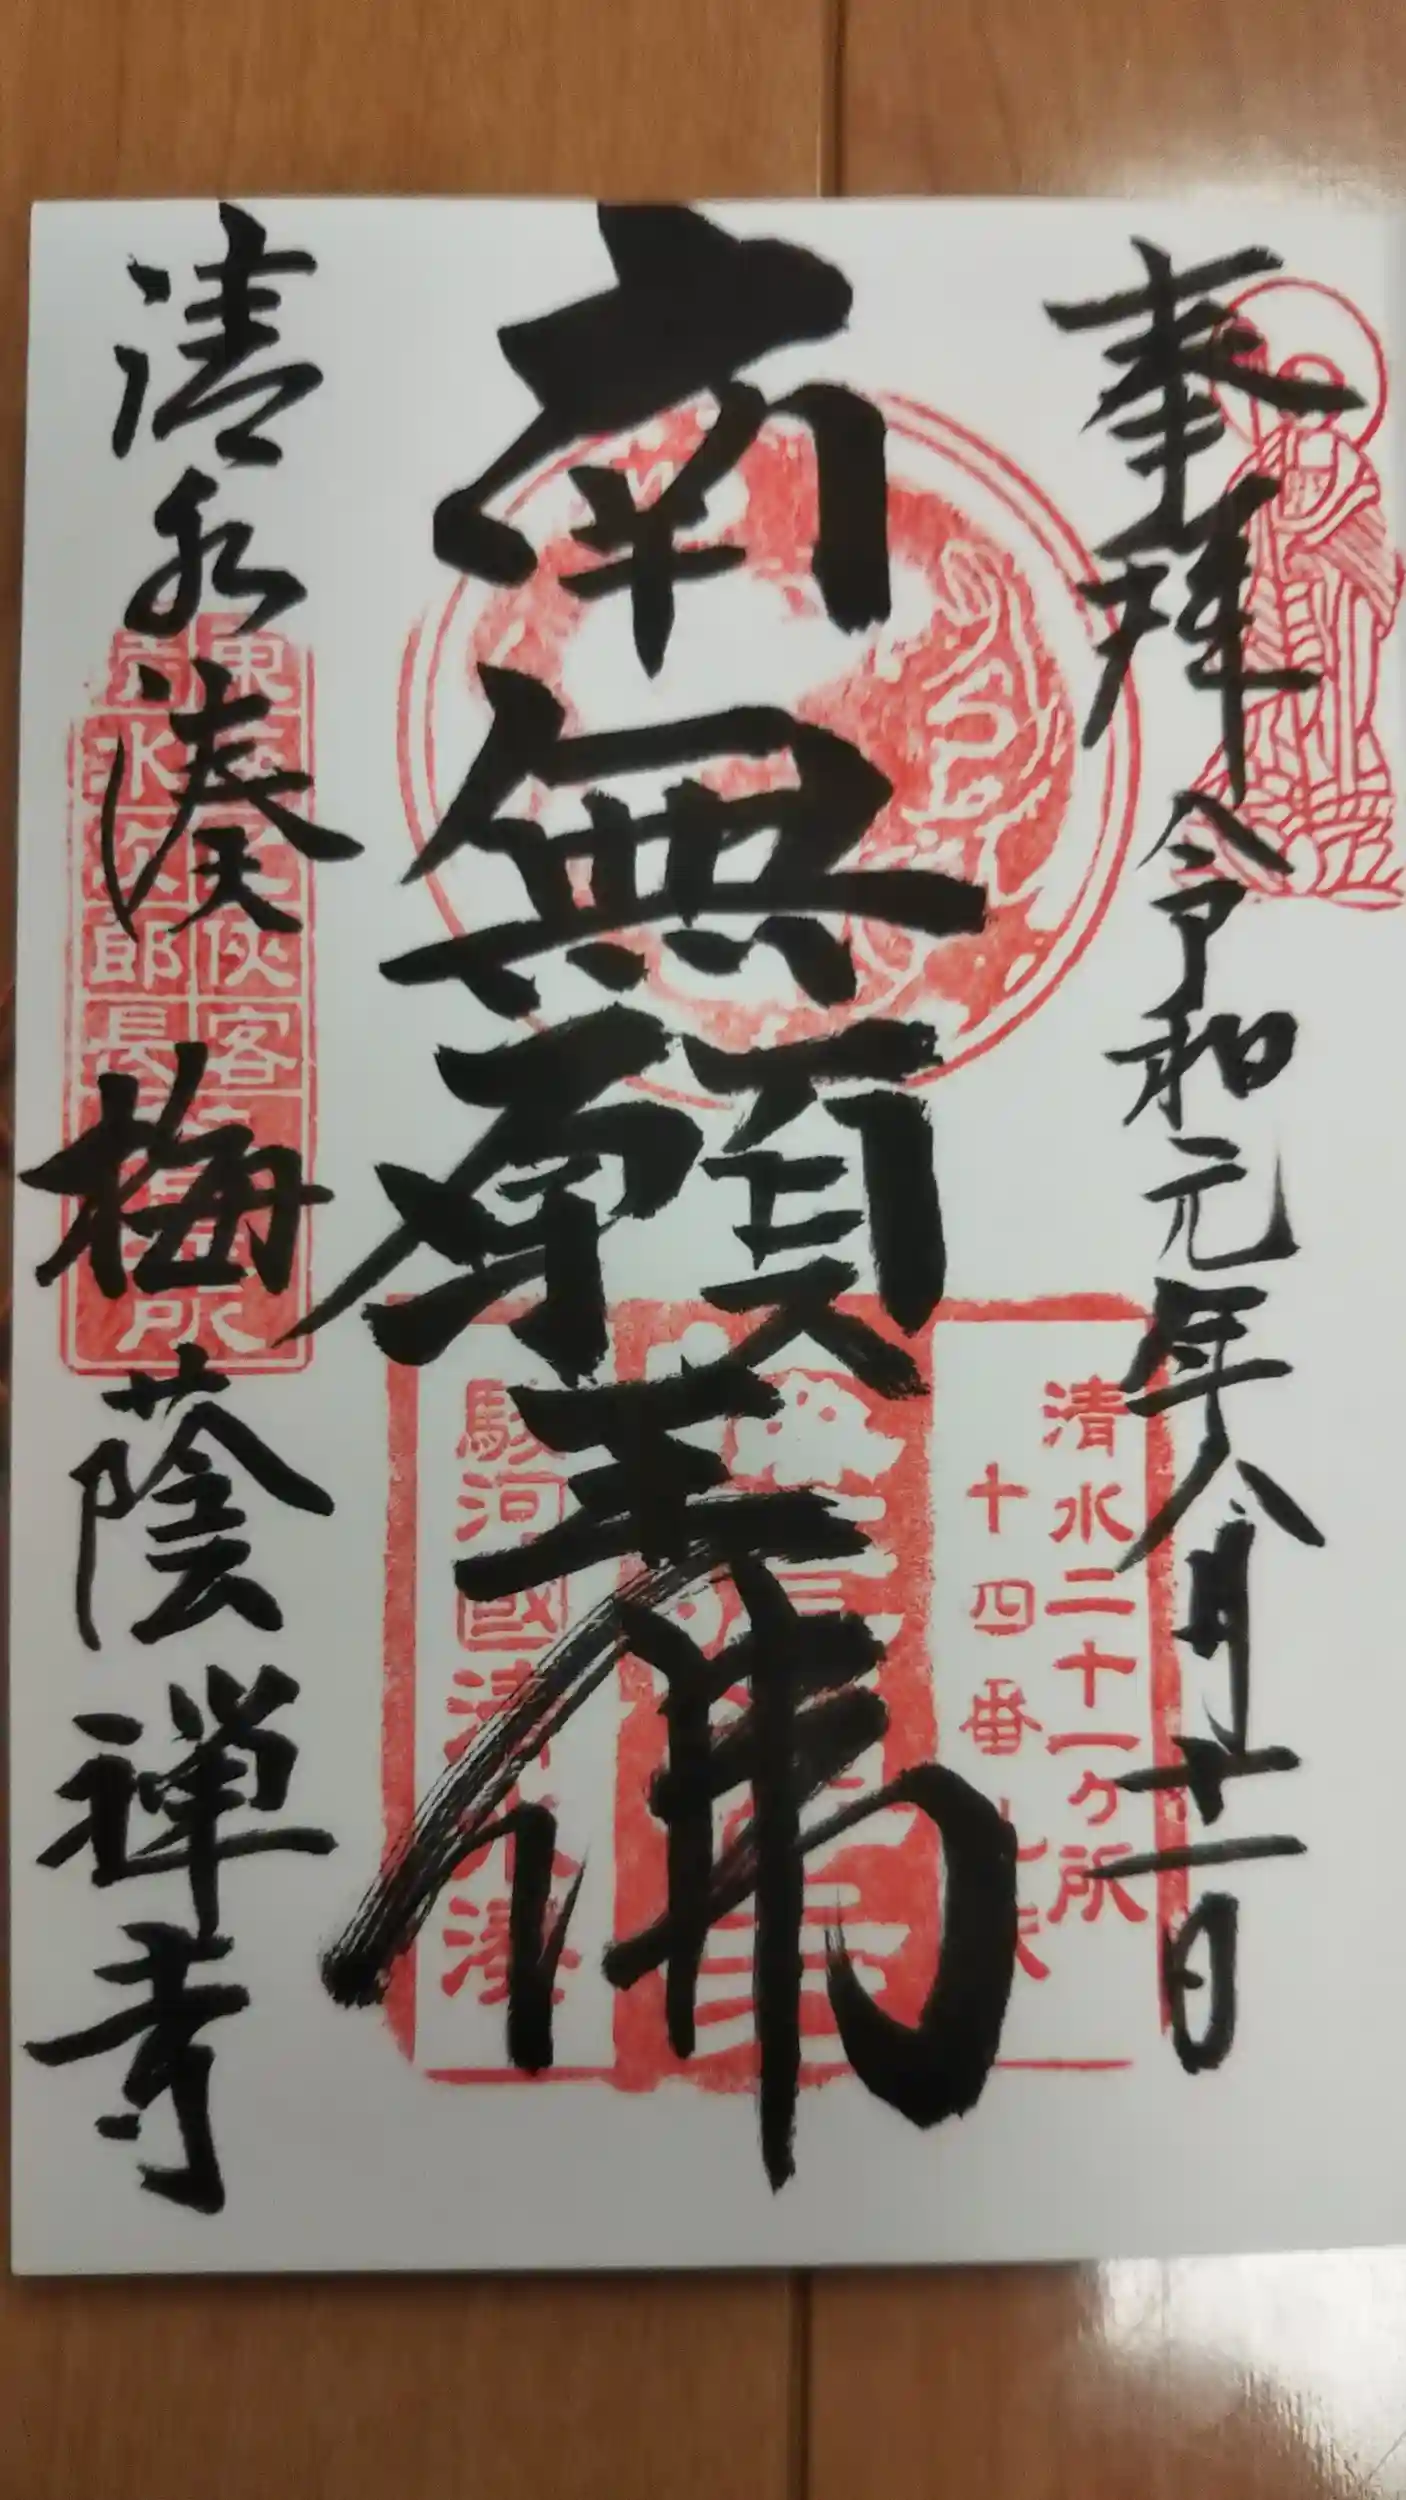 奉拝 令和元年八月廿一日
清水二十一ヶ所
十四番札所
南無願王佛
駿河國清水湊
清水湊 梅蔭禅寺
侠客
清水次郎長
所